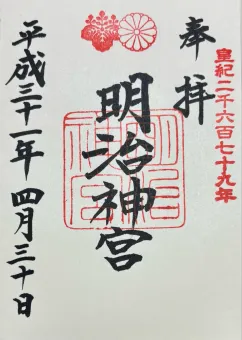 皇紀二千六百七十九年
奉拝
明治神宮
平成三十一年 四月三十日